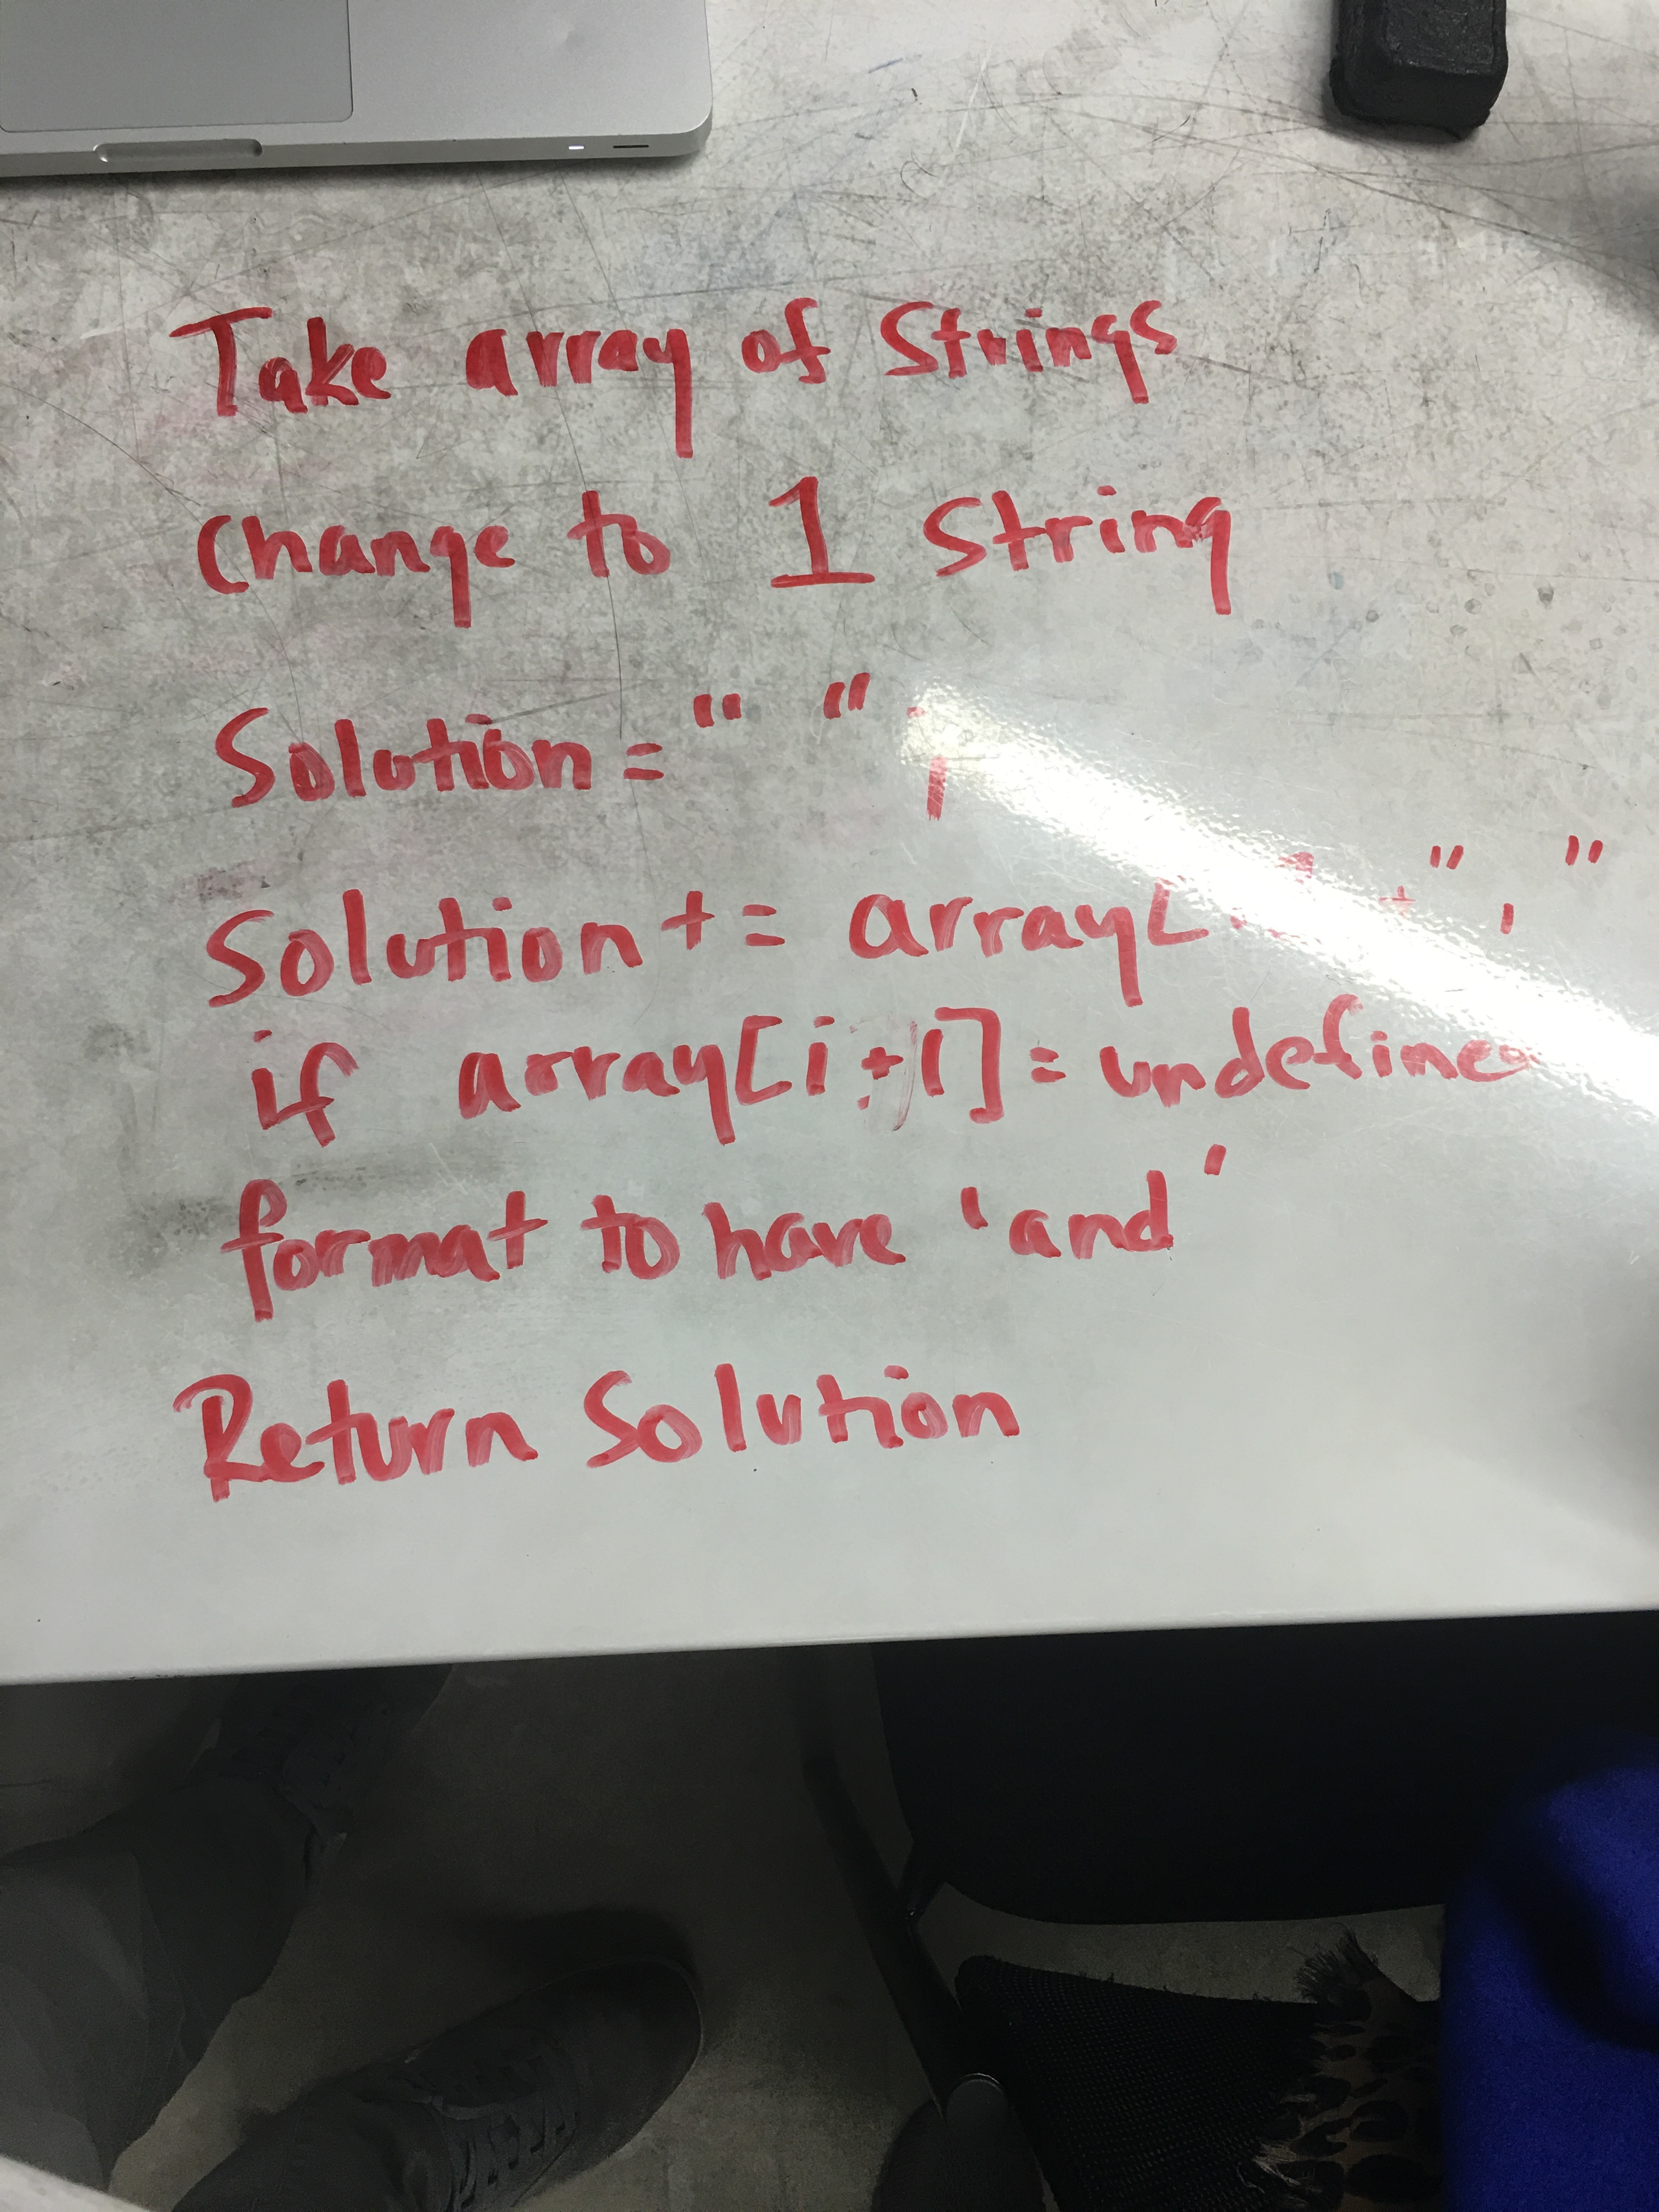 Take array of Strings
Change to 1 String
Solution = " " ;
Solution += array[i] + ", "
if array[i+1] = undefined
format to have 'and'
Return Solution